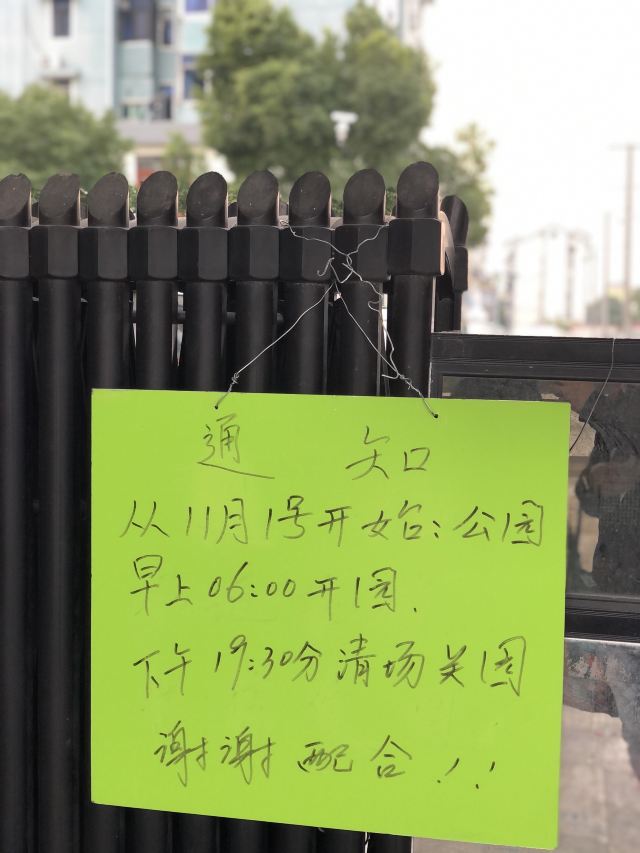 通知
从11月1号开始:公园
早上06:00开园.
下午19:30分清场关园
谢谢配合!!